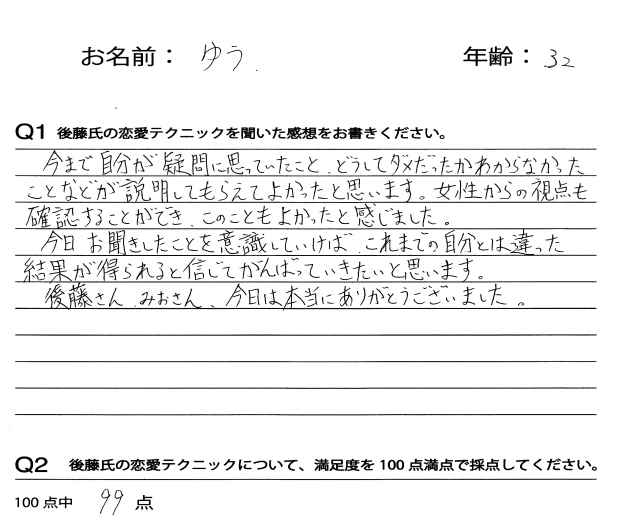 お名前： ゆう. 年齢： 32
Q1 後藤氏の恋愛テクニックを聞いた感想をお書きください。
今まで自分が疑問に思っていたこと、どうしてダメだったかわからなかった
ことなどが説明してもらえてよかったと思います。女性からの視点も
確認することができ、このこともよかったと感じました。
今日お聞きしたことを意識していけば、これまでの自分とは違った
結果が得られると信じてがんばっていきたいと思います。
後藤さん、みおさん、今日は本当にありがとうございました。
Q2 後藤氏の恋愛テクニックについて、満足度を100点満点で採点してください。
100点中 99 点